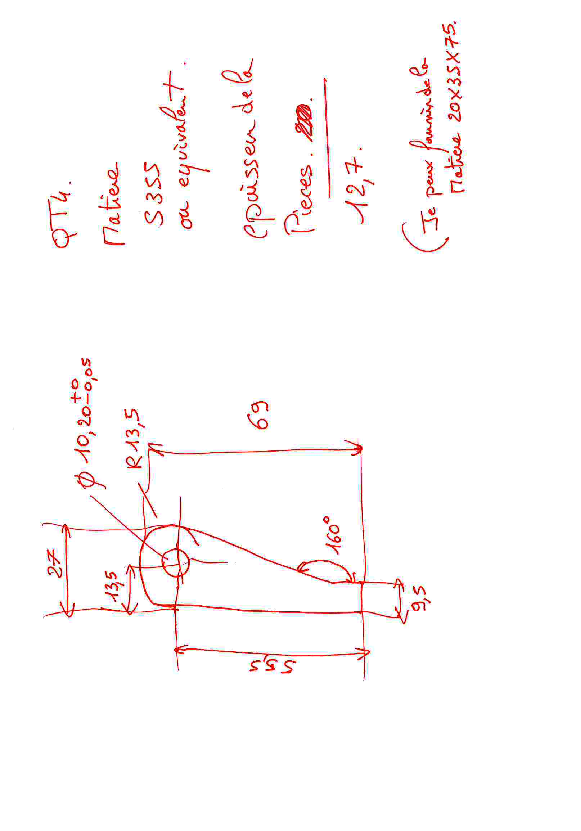 QT 4.
Matiere
S355
ou equivalent.
épaisseur de la
Pieces.
12,7.
(Je peux fournir de la
Matiere 20x35x75.
Ø 10,20 +0 -0,05
R13,5
69
27
13,5
160°
9,5
55,5